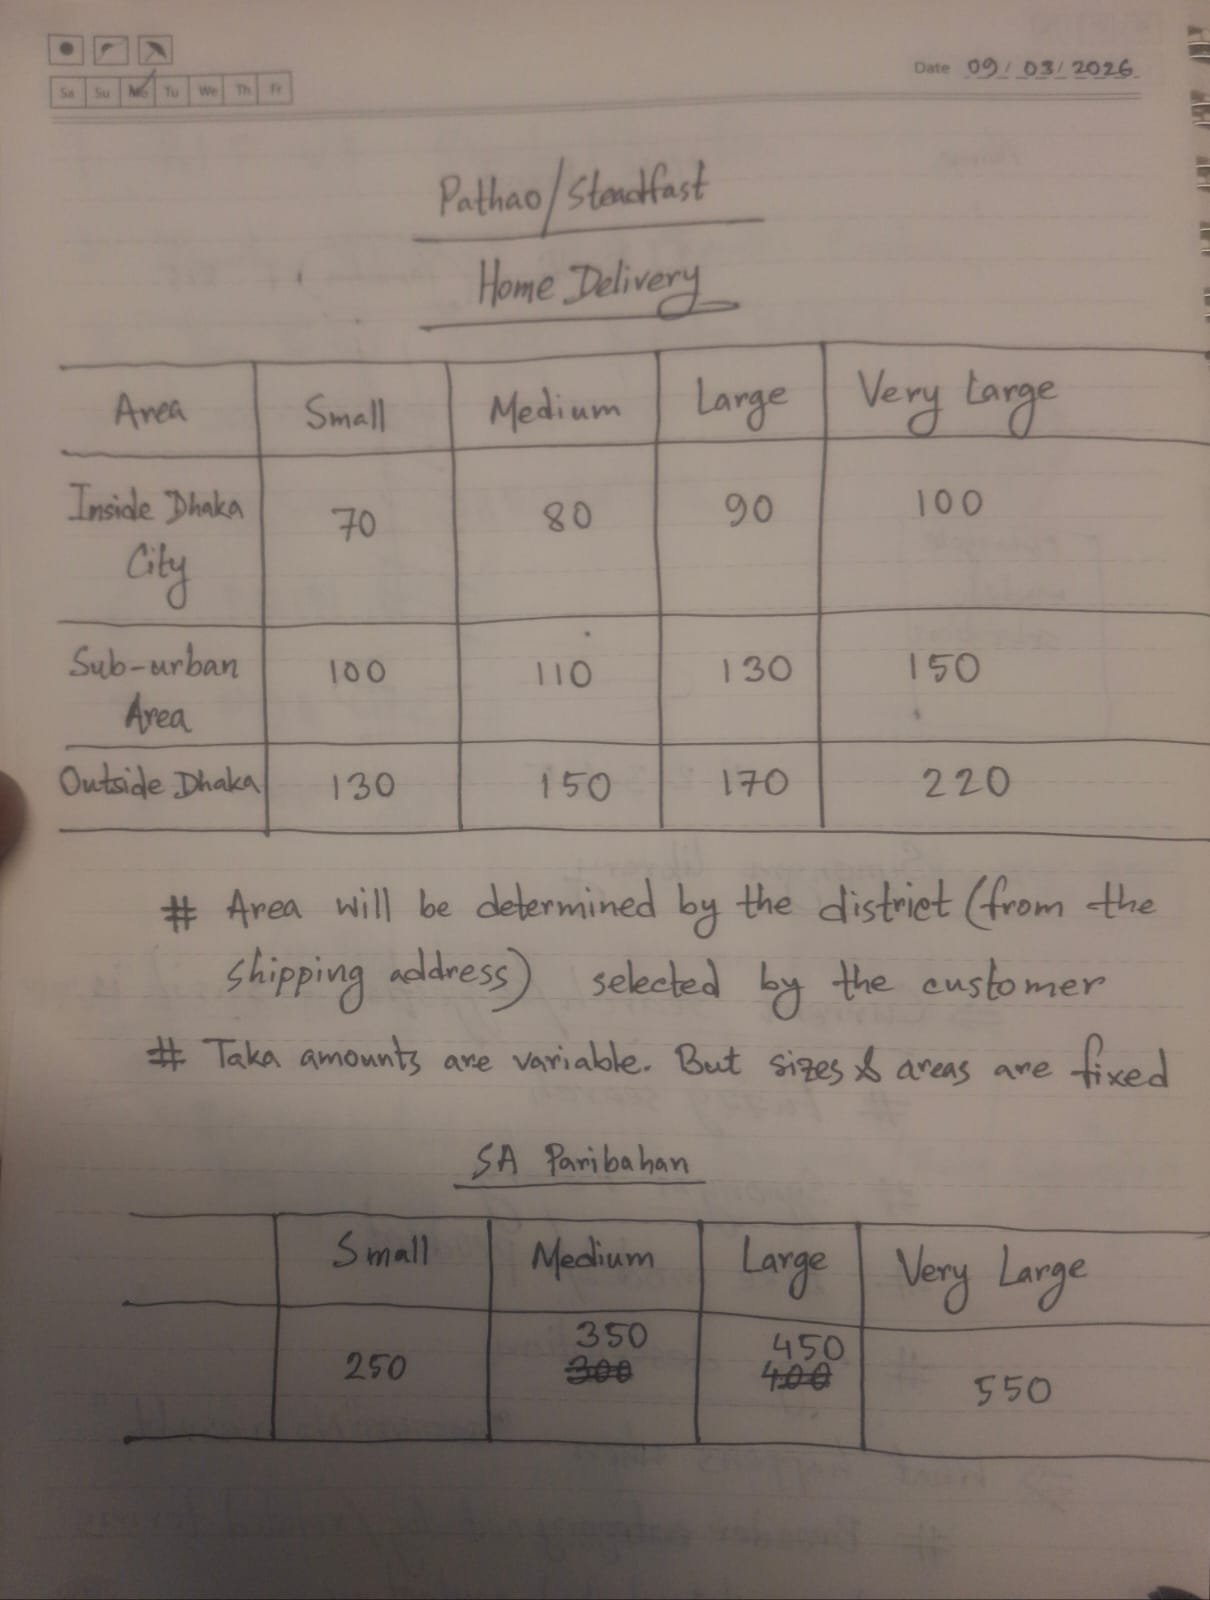 Sa Su Mo Tu We Th Fr
Date 09/03/2026
Pathao/Steadfast
Home Delivery
Area Small Medium Large Very Large
Inside Dhaka City 70 80 90 100
Sub-urban Area 100 110 130 150
Outside Dhaka 130 150 170 220
# Area will be determined by the district (from the
shipping address) selected by the customer
# Taka amounts are variable. But sizes & areas are fixed
SA Paribahan
Small Medium Large Very Large
350 450
250 300 400 550